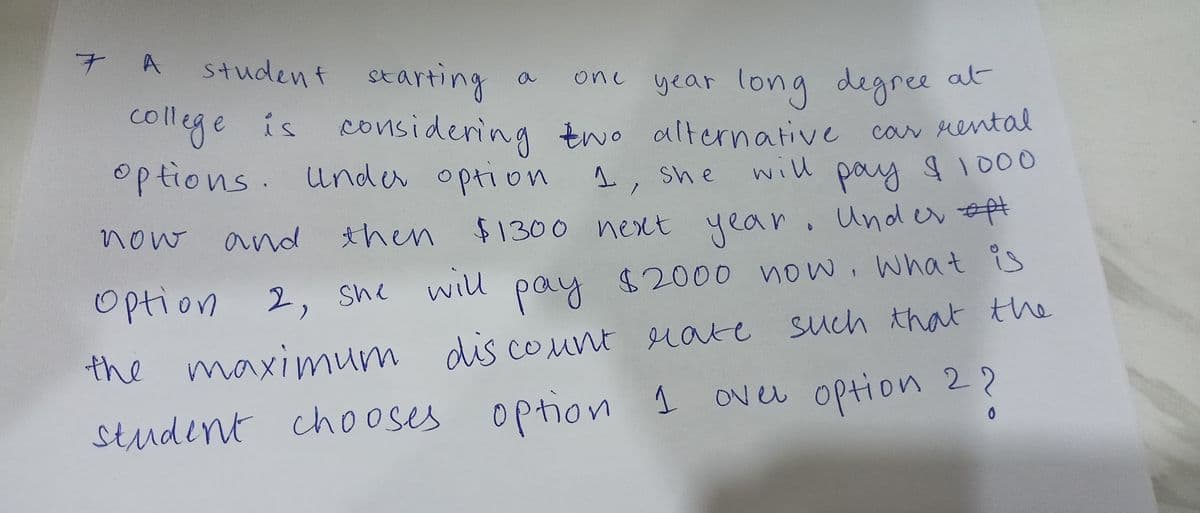 7 A student starting a one year long degree at
college is considering two alternative car rental
options. Under option 1, she will pay $1000
now and then $1300 next year. Under opt
option 2, she will pay $2000 now. What is
the maximum discount rate such that the
student chooses option 1 over option 2?